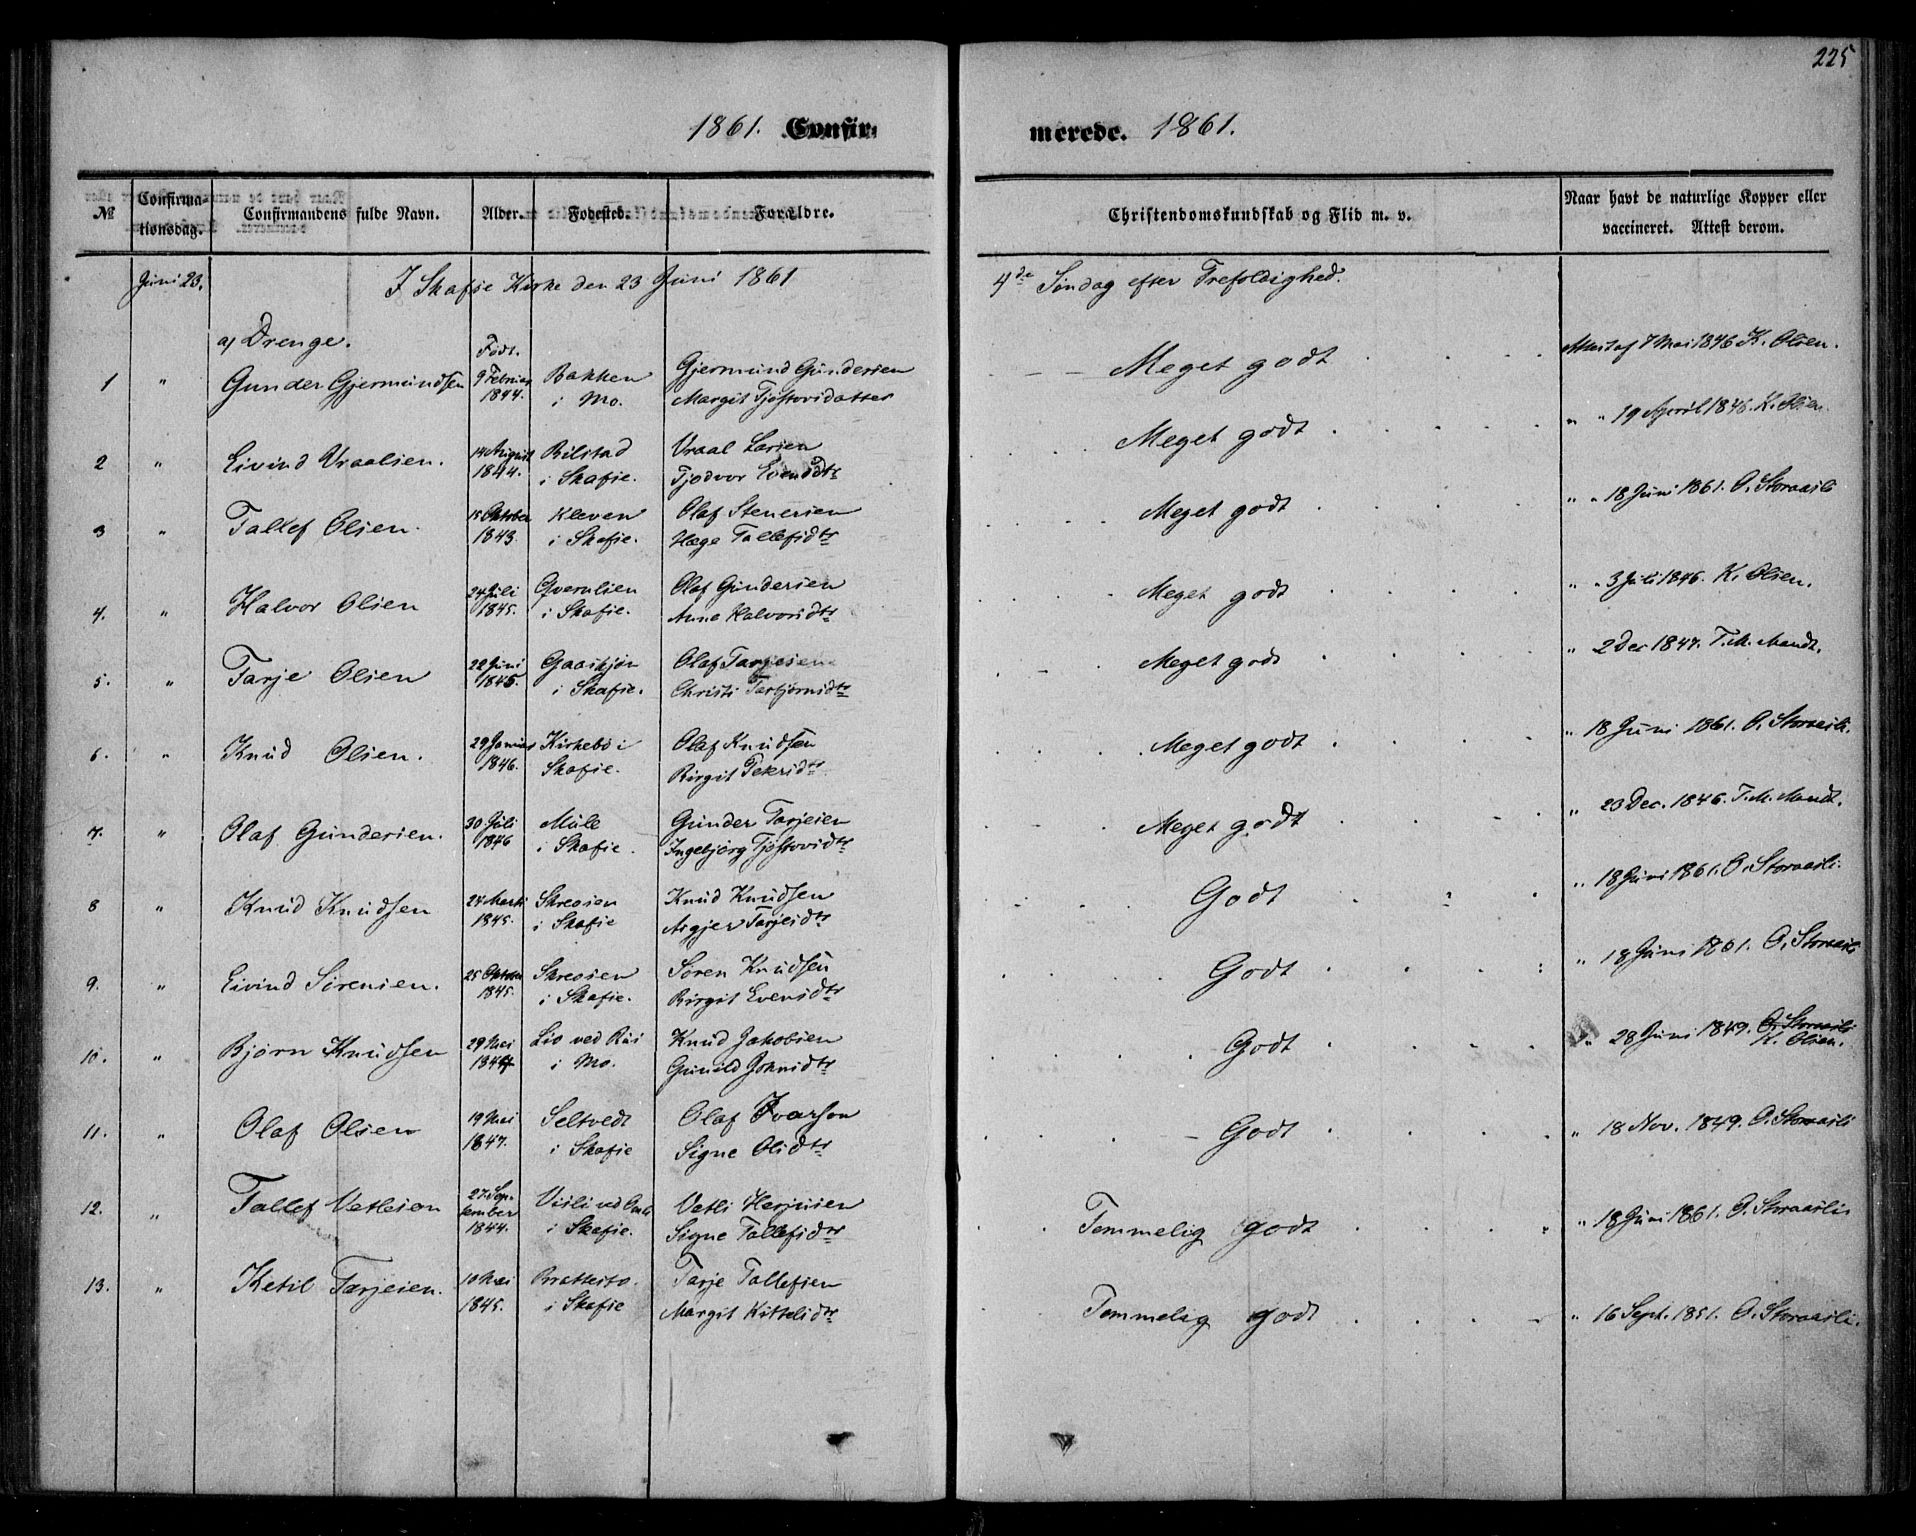 225
1861. Confir-
merede. 1861.
№
Confirma-
tionsdag.
Confirmandens fulde Navn.
Alder.
Fødested.
Forældre.
Christendomskundskab og Flid m. v.
Naar havt de naturlige Kopper eller
vaccineret. Attest derom.
Juni 23. I Skafse Kirke den 23 Juni 1861
4de Søndag efter Trefoldighed.
a) Drenge.
Født.
1 " Gunder Gjermundsen 9 Februar 1844. Bakken i Mo. Gjermund Gundersen Margit Tjøstovsdatter
Meget godt
Attest af 7 Mai 1846 K. Olsen.
2 " Eivind Vraalsen. 14 August 1844. Bilstad i Skafse. Vraal Larsen Tjodvor Evendsdtr
Meget godt
" " 19 April 1846. K. Olsen.
3 " Tallef Olsen. 18 Oktober 1843. Kleven i Skafse. Olaf Stenersen Hæge Tallefsdtr
Meget godt
" " 18 Juni 1861. O. Storaasli
4. " Halvor Olsen 24 Juli 1845. i Skafse. Olaf Gundersen Anne Halvorsdtr
Meget godt
" " 3 Juli 1846. K. Olsen.
5. " Tarje Olsen 22 Juni 1845. i Skafse. Olaf Tarjesen Christi Torbjørnsdtr
Meget godt
" 2 Dec 1847. T. M. Mandt.
6. " Knud Olsen. 29 Januar 1846. Kirkebø i Skafse. Olaf Knudsen Birgit
Meget godt
" 18 Juni 1861. O. Storaasli.
7. " Olaf Gundersen. 30 Juli 1846 Mule i Skafse. Gunder Tarjeisen Ingebjørg Tjøstovsdtr
Meget godt
" 23 Dec. 1846. T. M. Mandt.
8 " Knud Knudsen 24 Marts 1845. Skreosen i Skafse Knud Knudsen Asgjer Tarjeisdtr
Godt
" 18 Juni 1861. O. Storaasli.
9. " Eivind Sørensen. 25 Oktober 1845. Skreosen i Skafse. Søren Knudsen Birgit Evensdtr
Godt
" 18 Juni 1861. O. Storaasli
10. " Bjørn Knudsen 29 Mai Lio ved Rui i Mo. Knud Jakobsen Gunild Johnsdtr
Godt
" 28 Juni 1849. O. Storaasli K. Olsen.
11. " Olaf Olsen 19 Mai 1847. Seltvedt i Skafse Olaf Ivarson Signe Olsdtr
Godt
" 18 Nov. 1849. O. Storaasli
12. " Tallef Vetleson 27 September 1844. Visli ved i Skafse. Vetli Herjusen Signe Tallefsdtr
Temmelig godt
" 18 Juni 1861. O. Storaasli
13. " Ketil Tarjeisen. 10 Mai 1845. Brattesto. i Skafse Tarje Tallefsen Margit Kittelsdtr
Temmelig godt
" 16 Sept. 1851. O. Storaasli.